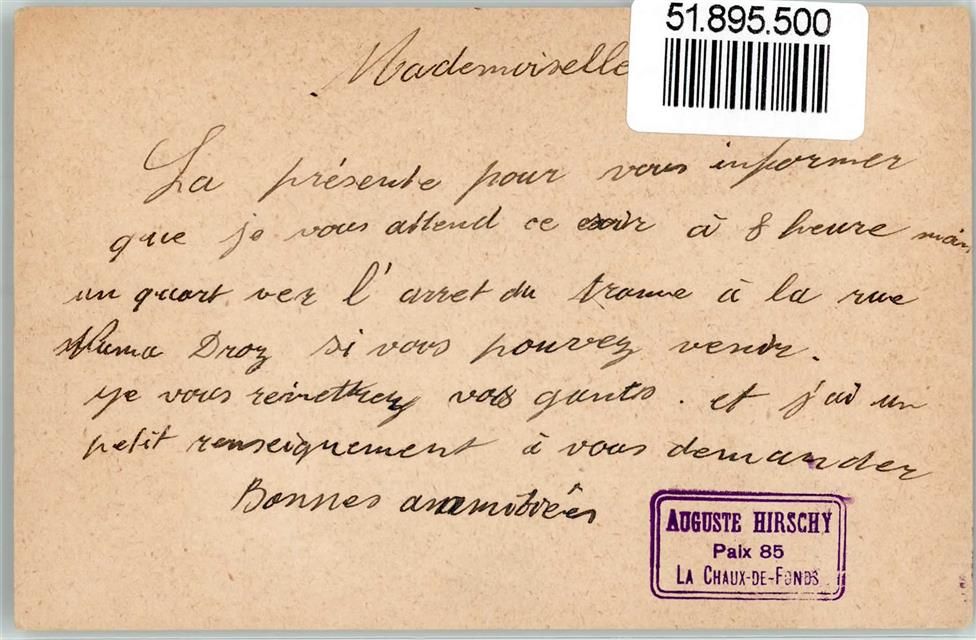 51.895.500
Mademoiselle
La présente pour vous informer
que je vous attend ce soir à 8 heure moin
un quart ver l'arret du tramme à la rue
Numa Droz si vous pouvez venir.
je vous remettrez vos gants. et j'ai un
petit renseignement à vous demander
Bonnes
AUGUSTE HIRSCHY
Paix 85
LA CHAUX-DE-FONDS